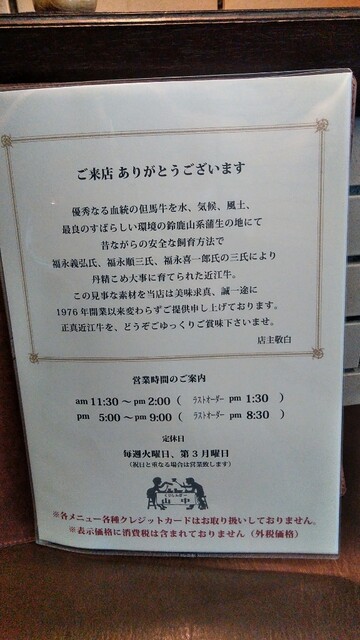 ご来店 ありがとうございます
優秀なる血統の但馬牛を水、気候、風土、
最良のすばらしい環境の鈴鹿山系蒲生の地にて
昔ながらの安全な飼育方法で
福永義弘氏、福永順三氏、福永喜一郎氏の三氏により
丹精こめ大事に育てられた近江牛。
この見事な素材を当店は美味求真、誠一途に
1976年開業以来変わらずご提供申し上げております。
正真近江牛を、どうぞごゆっくりご賞味下さいませ。
店主敬白
営業時間のご案内
am 11:30 ~ pm 2:00 ( ラストオーダー pm 1:30 )
pm 5:00 ~ pm 9:00 ( ラストオーダー pm 8:30 )
定休日
毎週火曜日、第3月曜日
(祝日と重なる場合は営業致します)
山中
※各メニュー各種クレジットカードはお取り扱いしておりません。
※表示価格に消費税は含まれておりません(外税価格)